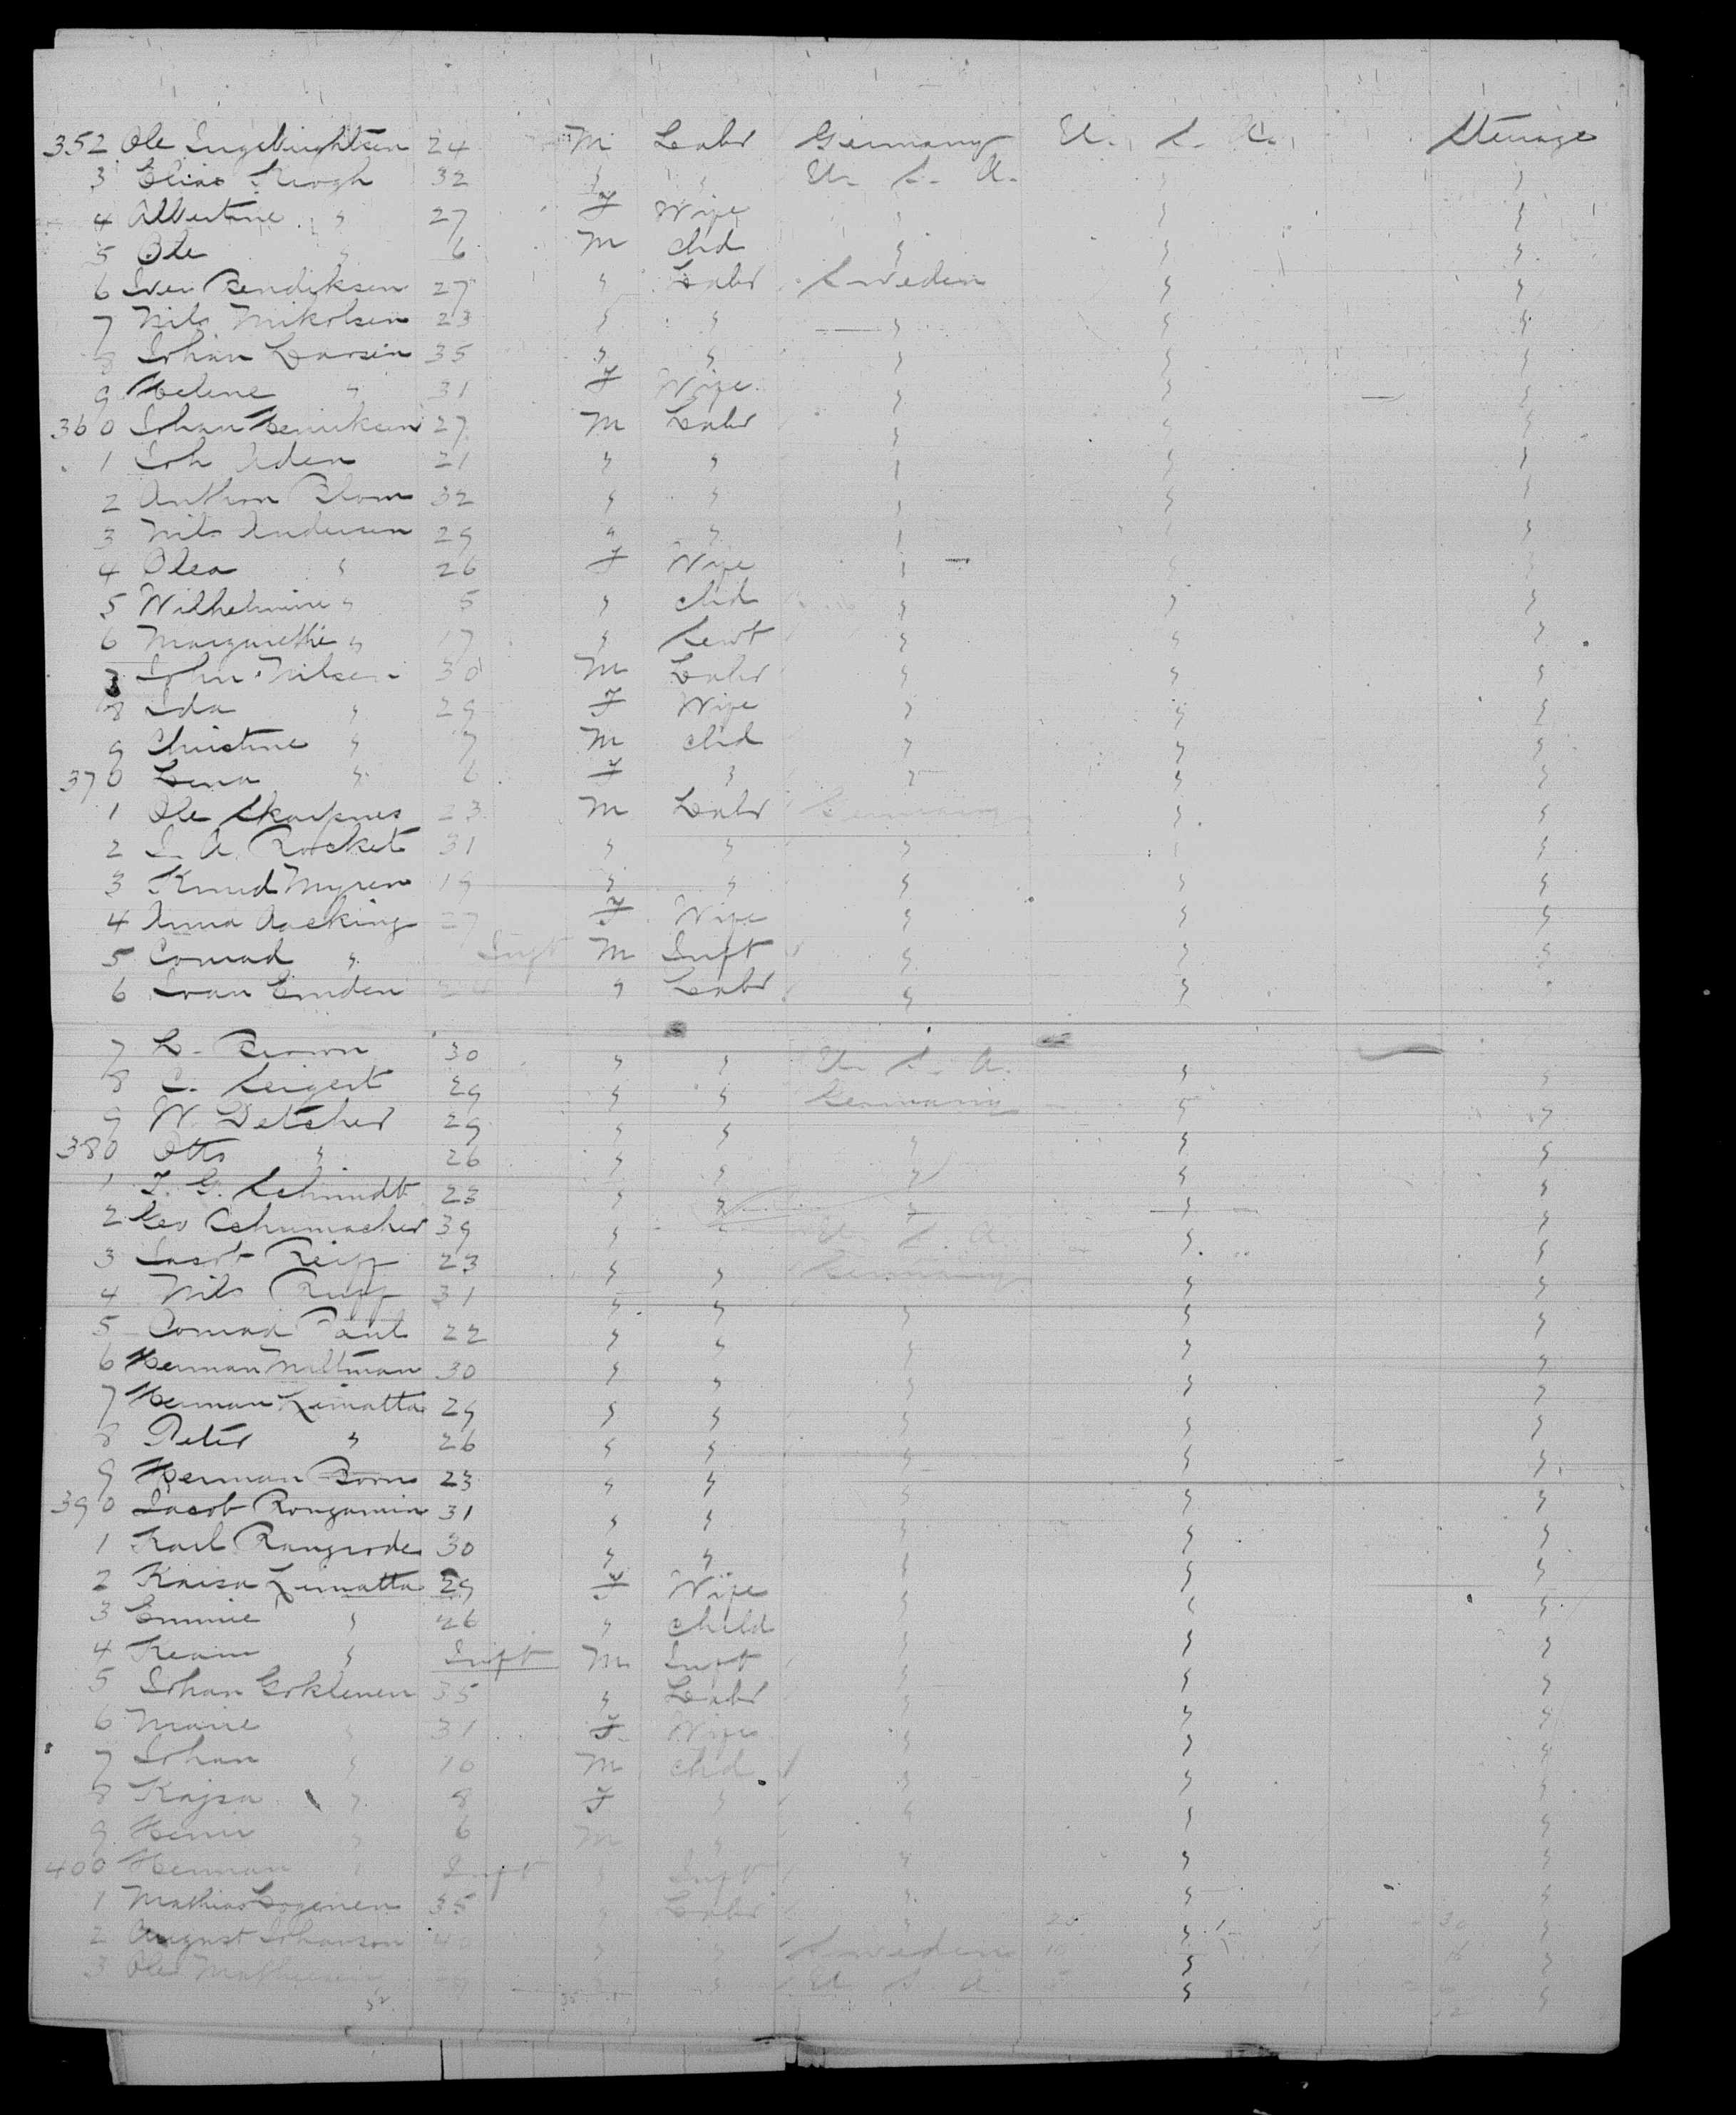 352 Ole Ingebrightsen 24 M Labr Germany U. S. A. Sterage
3 Elias Krogh 32 " " U. S. A. " "
4 Albertine " 27 F Wife " " "
5 Ole " 6 M chd " " "
6 Iver Bendiksen 27 " Labr Sweden " "
7 Nils Mikolsen 23 " " " " "
8 Johan Larsen 35 " " " " "
9 Helene " 31 F Wife " " "
360 Johan Henriksen 27 M Labr " " "
1 Joh Aden 21 " " " " "
2 Anthon Blom 32 " " " " "
3 Nils Andersen 29 " " " " "
4 Olea " 26 F Wife " " "
5 Wilhelmine " 5 " chd " " "
6 Margrethe " 17 " Servt " " "
7 John Nilsen 30 M Labr " " "
8 Ida " 29 F Wife " " "
9 Christine " 7 M chd " " "
370 Lena " 6 F " " " "
1 Ole 23 M Labr Germany " "
2 J. A. Rocket 31 " " " " "
3 Knud Myren 19 " " " " "
4 Anna 27 F Wife " " "
5 Conrad " Inft M Inft " " "
6 Ivan Emden " Labr " " "
7 L. Brown 30 " " U. S. A. " "
8 C. Seigert 29 " " Germany " "
9 W. Detcher 29 " " " " "
380 Otto " 26 " " " " "
1 F. G. Schmidt 23 " " " " "
2 Geo Schumacher 39 " " U. S. A. " "
3 Jacob 23 " " Germany " "
4 Nils 31 " " " " "
5 Conrad Paul 22 " " " " "
6 Herman Miltman 30 " " " " "
7 Herman Limatta 29 " " " " "
8 Peter " 26 " " " " "
9 Herman Born 23 " " " " "
390 Jacob 31 " " " " "
1 Karl 30 " " " " "
2 Kaisa Limatta 29 F Wife " " "
3 Emmie " 26 " child " " "
4 " Inft M Inft " " "
5 Johan 35 " Labr " " "
6 " 31 F Wife " " "
7 Johan " 10 M chd " " "
8 Kajsa " 8 F " " " "
9 " 6 M " " " "
400 Herman " Inft " Inft " " "
1 Mathias 35 " Labr " " "
2 August Johanson 40 " " Sweden " "
3 Ole " " U. S. A. " "